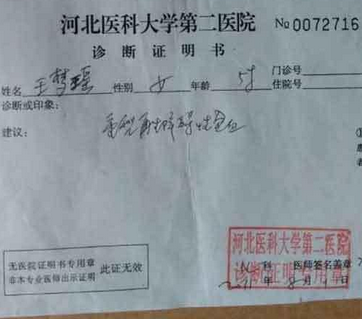 河北医科大学第二医院 No 0072716
诊断证明书
门诊号
姓名 王梦瑶 性别 女 年龄 5岁 住院号
诊断或印象:
建议: 重型再生障碍性贫血
河北医科大学第二医院
诊断证明专用章
无医院证明书专用章
非本专业医师出示证明 此证无效
科 医师签名盖章